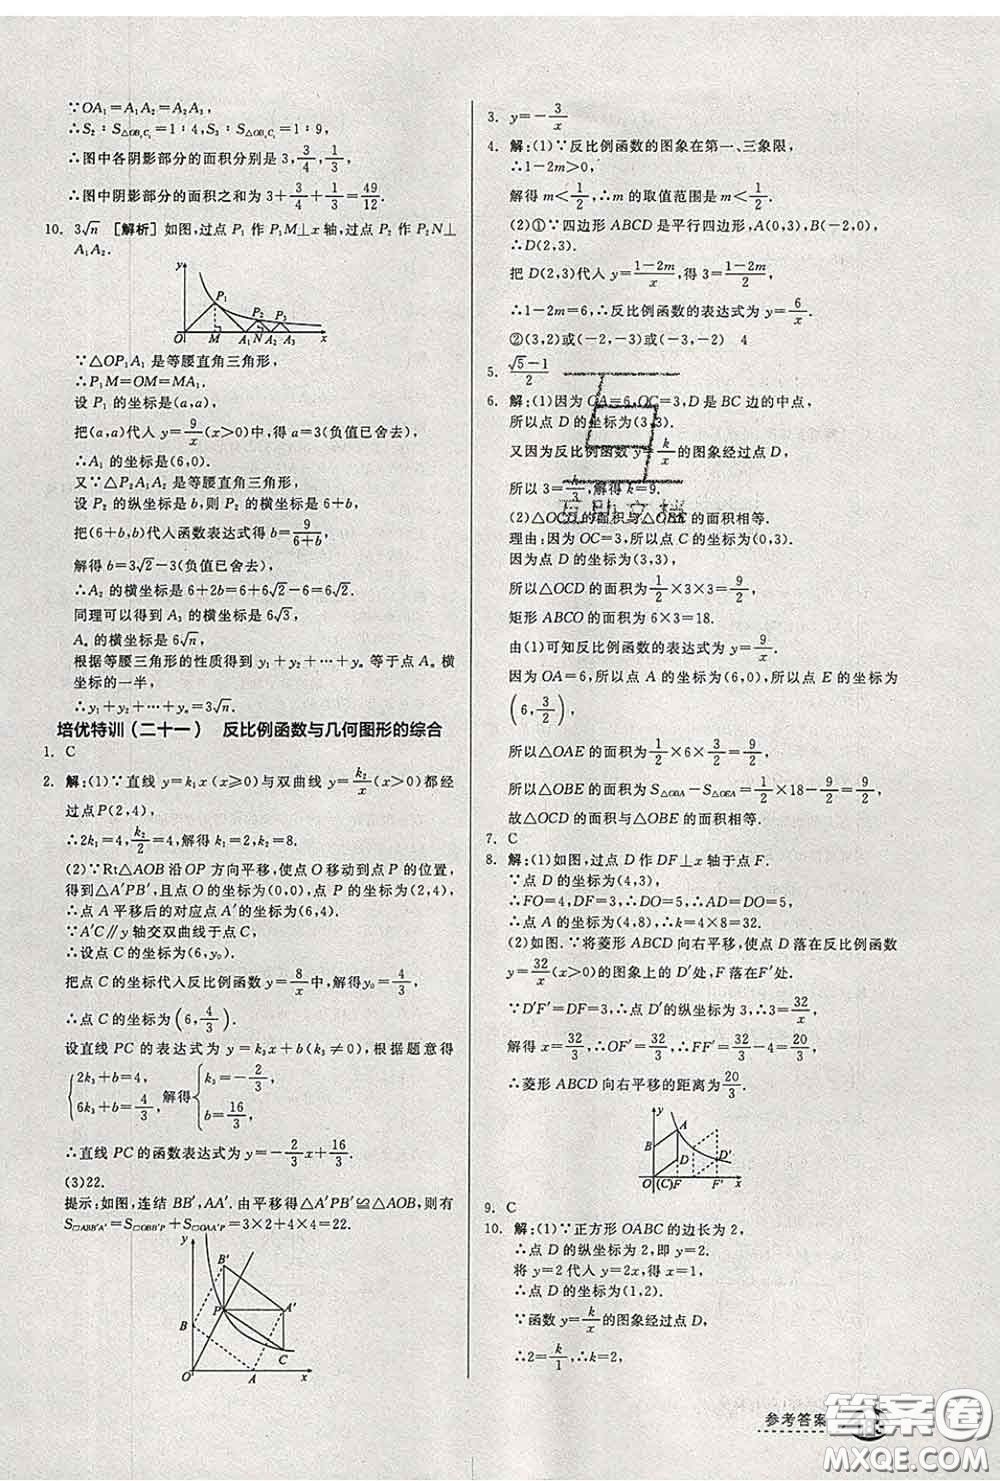 ∵OA₁=A₁A₂=A₂A₃,
∴S₂∶S△OB₂C₂=1∶4,S₃∶S△OB₃C₃=1∶9,
∴图中各阴影部分的面积分别是 3,3/4,1/3,
∴图中阴影部分的面积之和为 3+3/4+1/3=49/12.
10. 3√n [解析] 如图,过点 P₁ 作 P₁M⊥x 轴,过点 P₂ 作 P₂N⊥
A₁A₂.
y
P₁
P₂ P₃
O M A₁ N A₂ A₃ x
∵△OP₁A₁ 是等腰直角三角形,
∴P₁M=OM=MA₁.
设 P₁ 的坐标是(a,a),
把(a,a)代入 y=9/x(x>0)中,得 a=3(负值已舍去),
∴A₁ 的坐标是(6,0).
又∵△P₂A₁A₂ 是等腰直角三角形,
设 P₂ 的纵坐标是 b,则 P₂ 的横坐标是 6+b,
把(6+b,b)代入函数表达式得 b=9/(6+b),
解得 b=3√2-3(负值已舍去),
∴A₂ 的横坐标是 6+2b=6+6√2-6=6√2.
同理可以得到 A₃ 的横坐标是 6√3,
Aₙ 的横坐标是 6√n,
根据等腰三角形的性质得到 y₁+y₂+…+yₙ 等于点 Aₙ 横
坐标的一半,
∴y₁+y₂+…+yₙ=3√n.
培优特训(二十一) 反比例函数与几何图形的综合
1. C
2. 解:(1)∵直线 y=k₁x(x≥0)与双曲线 y=k₂/x(x>0)都经
过点P(2,4),
∴2k₁=4,k₂/2=4,解得 k₁=2,k₂=8.
(2)∵Rt△AOB 沿 OP 方向平移,使点 O 移动到点 P 的位置,
得到△A′PB′,且点 O 的坐标为(0,0),点 P 的坐标为(2,4),
∴点 A 平移后的对应点 A′的坐标为(6,4).
∵A′C∥y 轴交双曲线于点 C,
∴设点 C 的坐标为(6,y₀).
把点 C 的坐标代入反比例函数 y=8/x,解得y₀=4/3,
∴点 C 的坐标为(6,4/3).
设直线 PC 的表达式为 y=k₃x+b(k₃≠0),根据题意得
{2k₃+b=4, 6k₃+b=4/3, 解得{k₃=-2/3, b=16/3,
∴直线 PC 的函数表达式为 y=-2/3x+16/3.
(3)22.
提示:如图,连结 BB′,AA′. 由平移得△A′PB′≌△AOB,则有
S▱ABB′A′=S▱OBB′P+S▱OAA′P=3×2+4×4=22.
y
B′
P A′
B
C
O A x
3. y=-3/x
4. 解:(1)∵反比例函数的图象在第一、三象限,
∴1-2m>0,
解得 m<1/2,∴m 的取值范围是 m<1/2.
(2)①∵四边形 ABCD 是平行四边形,A(0,3),B(-2,0),
∴D(2,3).
把 D(2,3)代入 y=(1-2m)/x,得 3=(1-2m)/2,
∴1-2m=6,∴反比例函数的表达式为 y=6/x.
②(3,2)或(-2,-3)或(-3,-2) 4
5. (√5-1)/2
6. 解:(1)因为 OA=6,OC=3,D 是 BC 边的中点,
所以点 D 的坐标为(3,3).
又因为反比例函数 y=k/x的图象经过点 D,
所以 3=k/3,解得 k=9.
(2)△OCD 的面积与△OBE 的面积相等.
理由:因为 OC=3,所以点 C 的坐标为(0,3).
因为点 D 的坐标为(3,3),
所以△OCD 的面积为1/2×3×3=9/2.
矩形 ABCO 的面积为 6×3=18.
由(1)可知反比例函数的表达式为 y=9/x.
因为 OA=6,所以点 A 的坐标为(6,0),所以点 E 的坐标为
(6,3/2),
所以△OAE 的面积为1/2×6×3/2=9/2,
所以△OBE 的面积为 S△OBA-S△OEA=1/2×18-9/2=9/2,
故△OCD 的面积与△OBE 的面积相等.
7. C
8. 解:(1)如图,过点 D 作 DF⊥x 轴于点 F.
∵点 D 的坐标为(4,3),
∴FO=4,DF=3,∴DO=5,∴AD=5,
∴点 A 的坐标为(4,8),∴k=4×8=32.
(2)如图.∵将菱形 ABCD 向右平移,使点 D 落在反比例函数
y=32/x(x>0)的图象上的 D′处,F 落在F′处.
∵D′F′=DF=3,∴点 D′的纵坐标为 3,∴3=32/x,
解得 x=32/3,∴OF′=32/3,∴FF′=32/3-4=20/3,
∴菱形 ABCD 向右平移的距离为20/3.
y
A
B
D D′
O(C) F F′ x
9. C
10. 解:(1)∵正方形 OABC 的边长为 2,
∴点 D 的纵坐标为 2,即 y=2.
将 y=2 代入 y=2x,得 x=1,
∴点 D 的坐标为(1,2).
∵函数 y=k/x的图象过点 D,
∴2=k/1,∴k=2,
互助文档
参考答案
答案圈
MXQE.COM